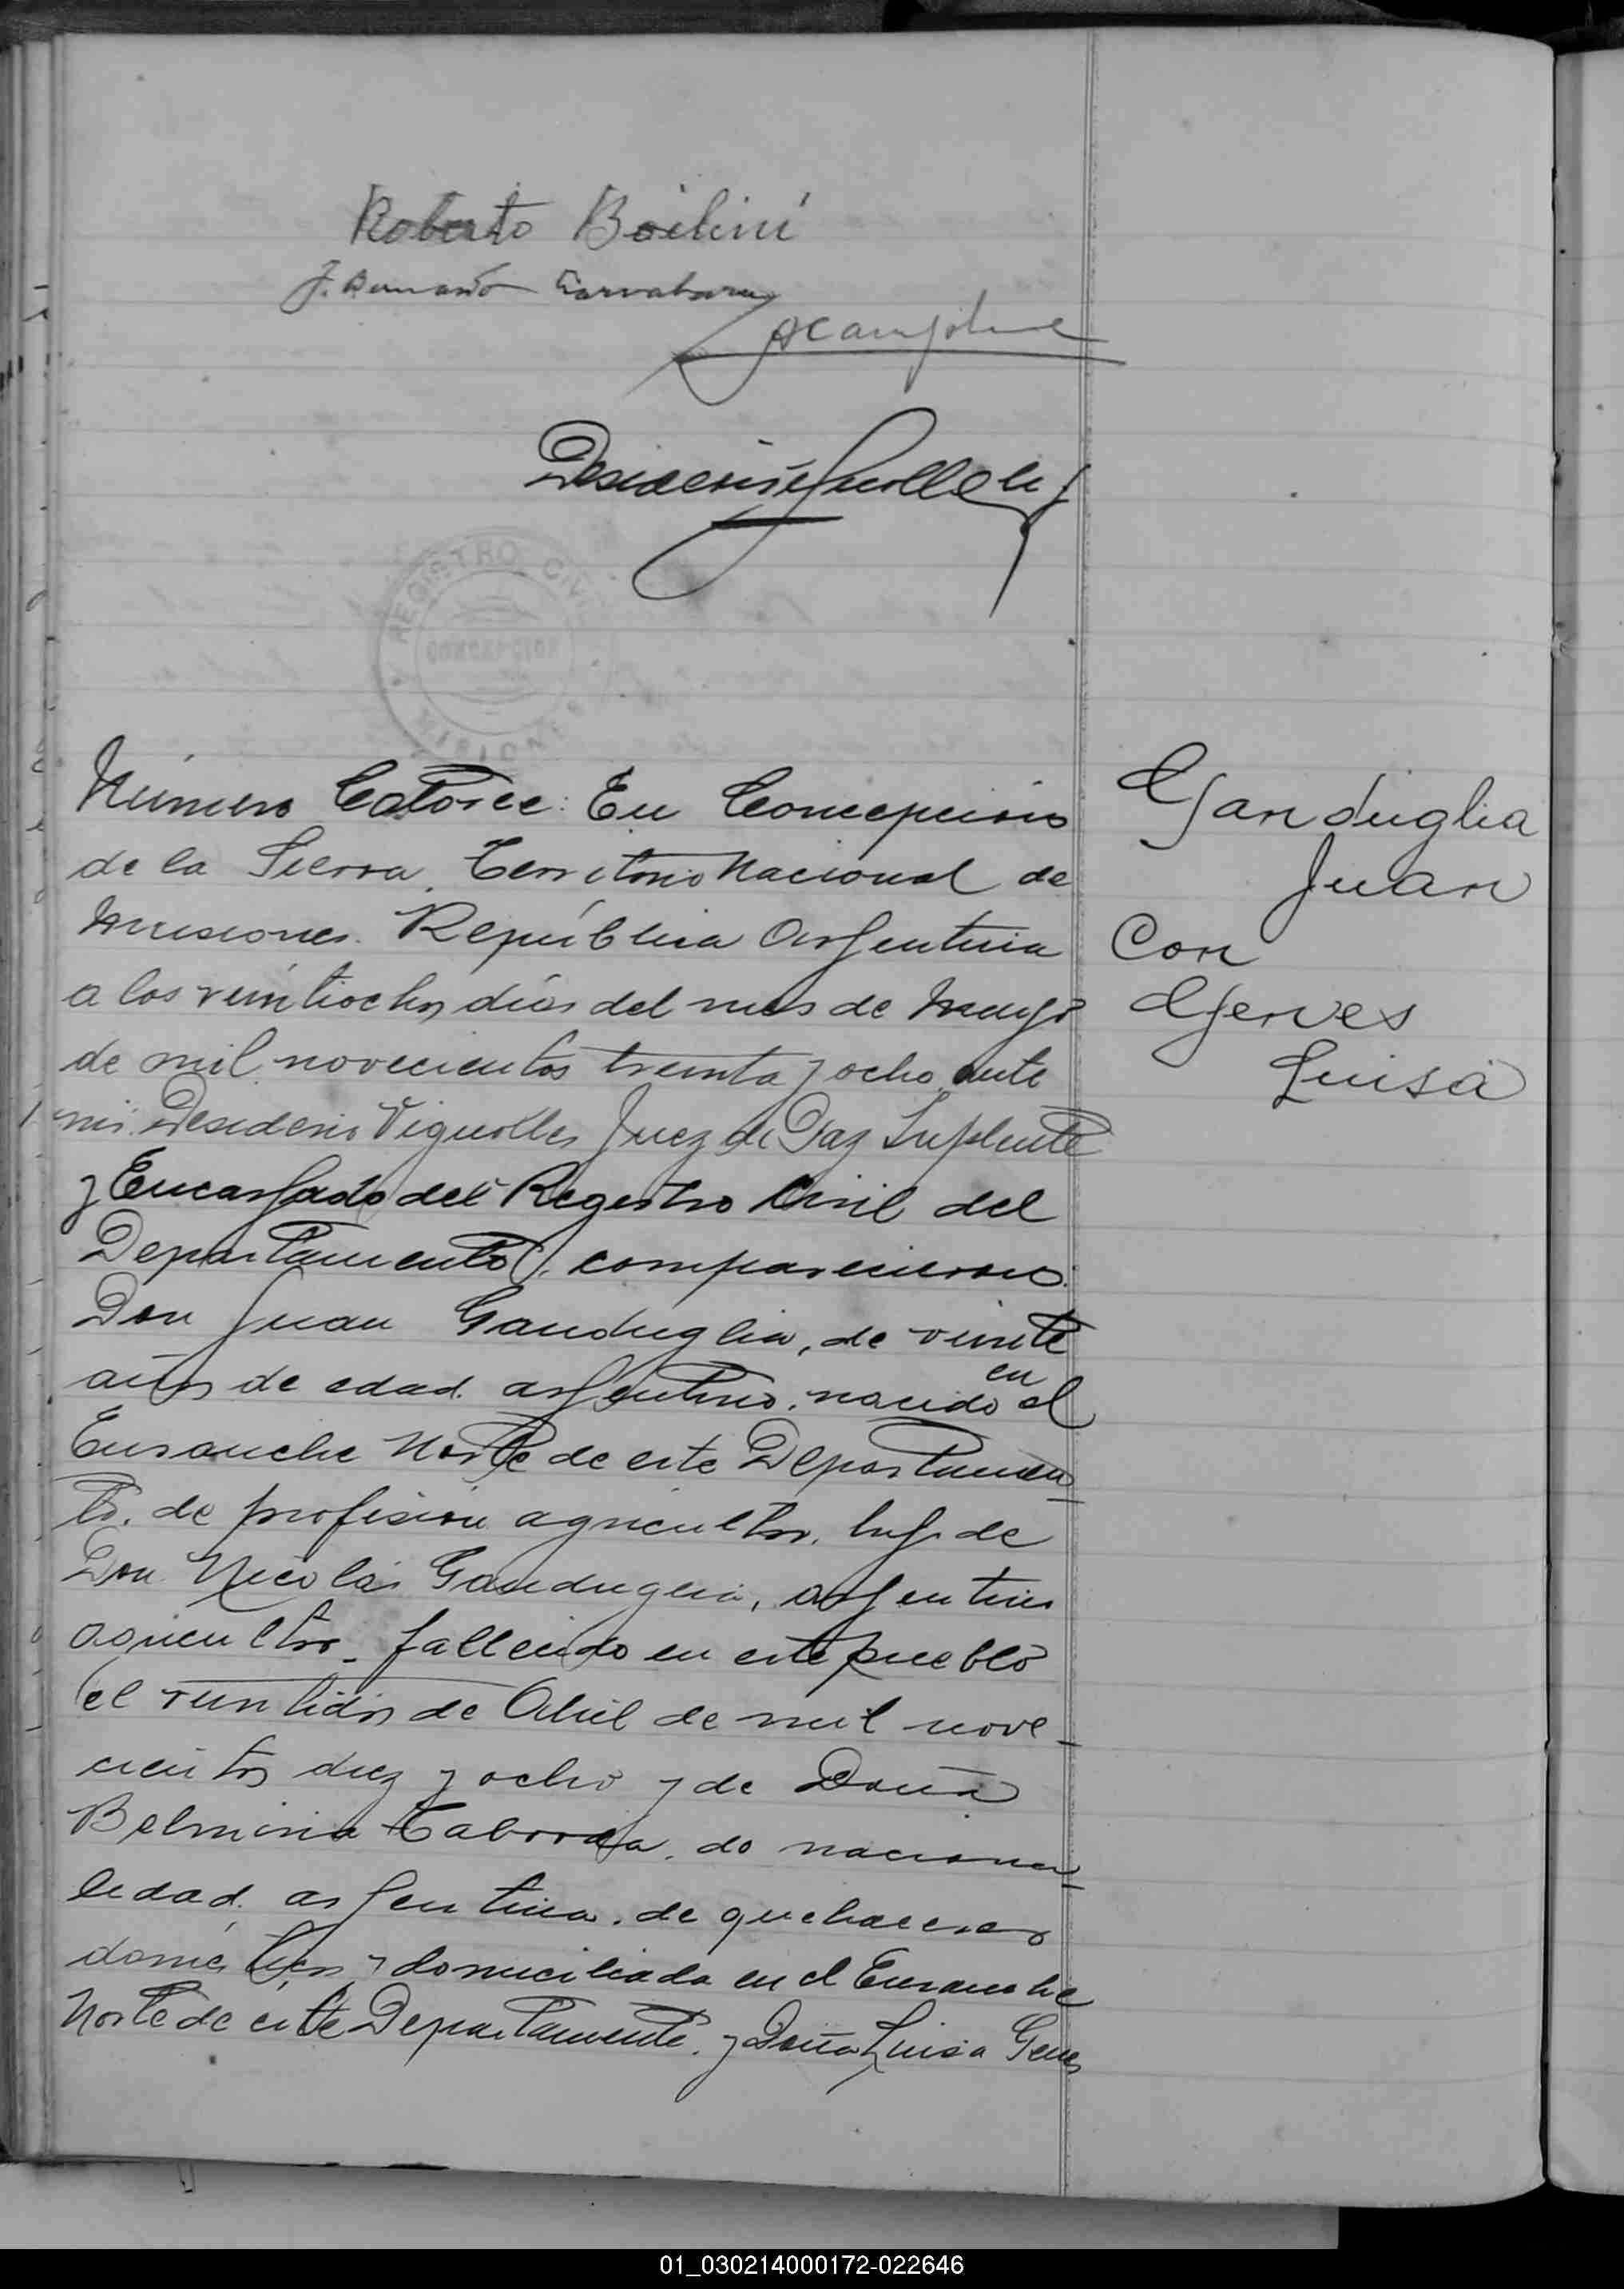 Roberto Boelini
Desiderio Vignolles
REGISTRO CIVIL
CONCEPCION
MISIONES
Número Catorce: En Concepcion
de la Sierra, Territorio Nacional de
Misiones. República Argentina
a los veintiocho días del mes de Mayo
de mil novecientos treinta y ocho, ante
mi Desiderio Vignolles Juez de Paz Suplente
y Encargado del Registro Civil del
Departamento, comparecieron:
Don Juan Ganduglia, de veinte
años de edad. argentino, nacido en el
Ensanche Norte de este Departamen-
to. de profesion agricultor, hijo de
Don Nicolás Ganduglia, argentino
agricultor, fallecido en este pueblo
el veintidos de Abril de mil nove-
cientos diez y ocho y de Doña
Belmiria Taborda, de naciona-
lidad argentina, de quehaceres
domésticos y domiciliada en el Ensanche
Norte de este Departamento, y Doña Luisa Genes
Ganduglia
Juan
Con
Genes
Luisa
01_030214000172-022646